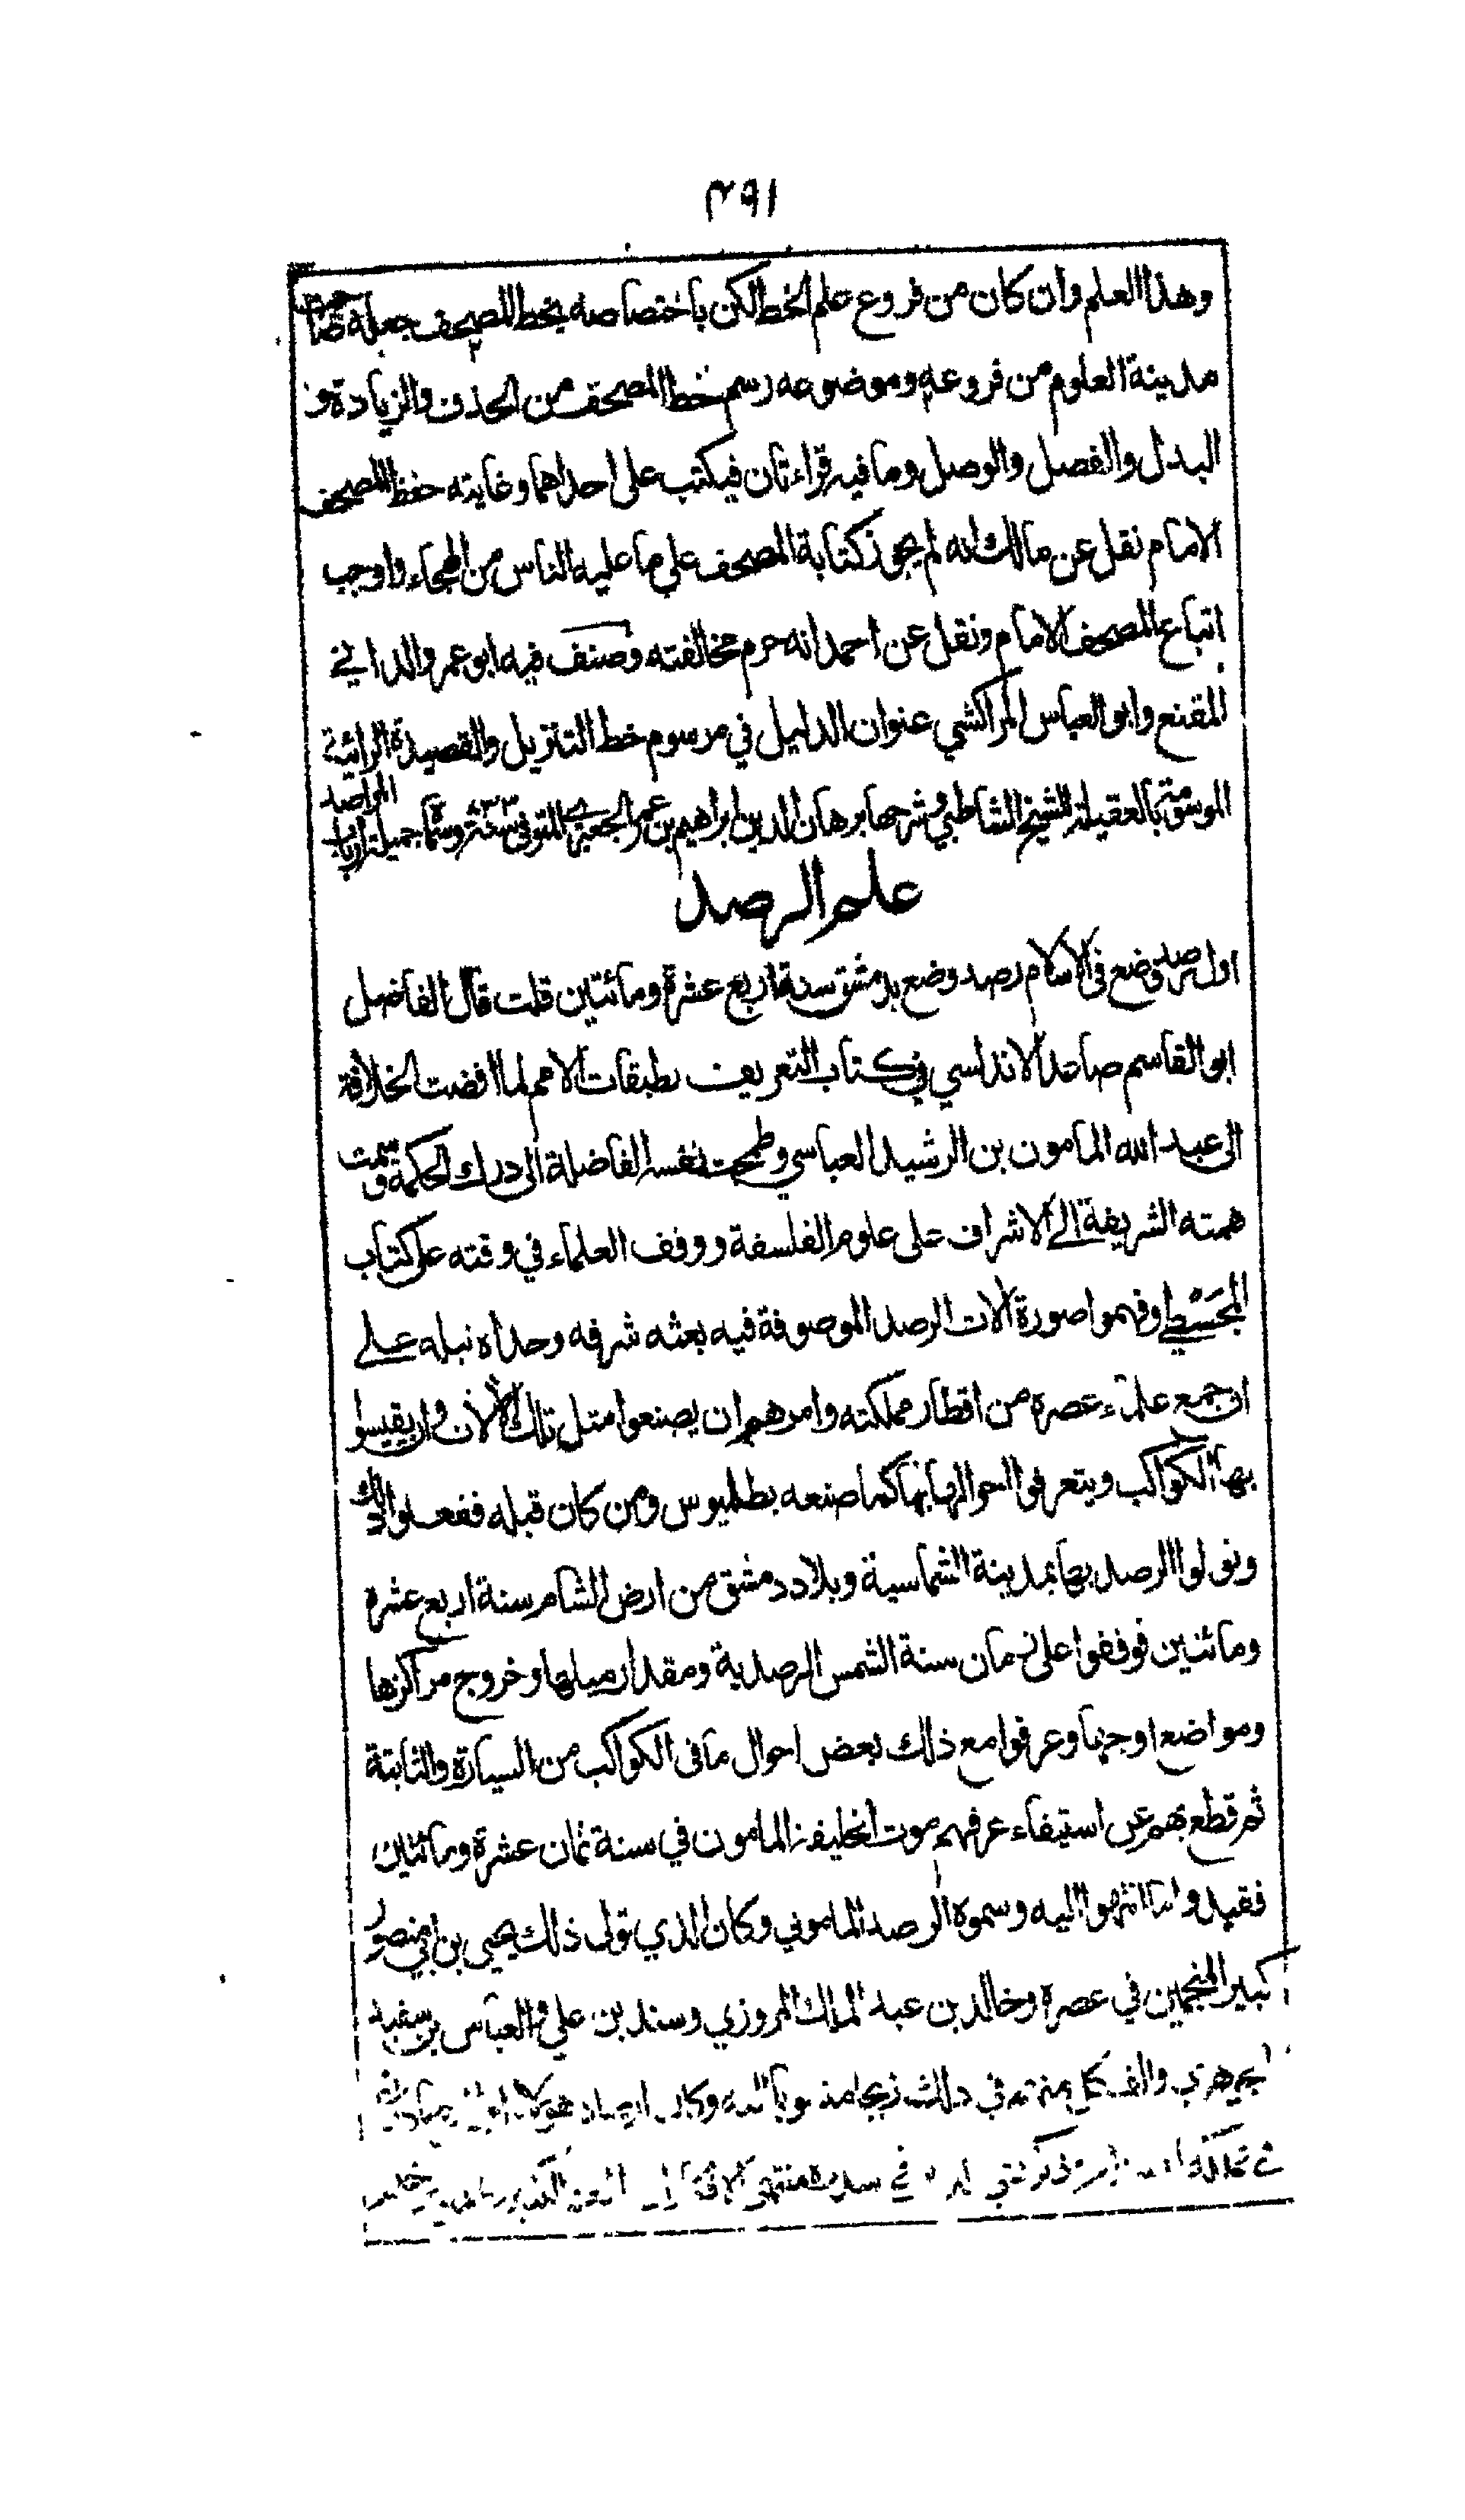 ٤٩١
وهذا العلم وان كان من فروع علم الخط لكن باختصاصه بخط المصحف جعله صاحب
مدينة العلوم من فروعه وموضوعه رسم خط المصحف من الحذف والزيادة و
البدل والفصل والوصل وما فيه قراءتان فيكتب على احداهما وغايته حفظ المصحف
الامام نقل عن مالك انه لم يجوز كتابة المصحف على ما عليه الناس من الهجاء واوجب
اتباع المصحف الامام ونقل عن احمد انه حرم مخالفته وصنف فيه ابو عمرو الداني
المقنع وابو العباس المراكشي عنوان الدليل في مرسوم خط التنزيل والقصيدة الرائية
الموسومة بالعقيلة للشيخ الشاطبي وشرحها برهان الدين ابراهيم بن عمر الجعبري المتوفى سنة وسماه جميلة ارباب المراصد
علم الرصد
اول رصد وضع في الاسلام رصد وضع بدمشق سنة اربع عشرة ومائتين قلت قال الفاضل
ابو القاسم صاعد الاندلسي في كتاب التعريف بطبقات الامم لما افضت الخلافة
الى عبد الله المامون بن الرشيد العباسي وطمحت نفسه الفاضلة الى درك الحكمة وسمت
همته الشريفة الى الاشراف على علوم الفلسفة ووقف العلماء في وقته على كتاب
المجسطي وفهموا صورة الات الرصد الموصوفة فيه بعثه شرفه وحداه نبله على
ان جمع علماء عصره من اقطار مملكته وامرهم ان يصنعوا مثل تلك الالات وان يقيسوا
بها الكواكب ويتعرفوا احوالها بها كما صنعه بطلميوس ومن كان قبله ففعلوا ذلك
وتولوا الرصد بها بمدينة الشماسية وبلاد دمشق من ارض الشام سنة اربع عشرة
ومائتين فوقفوا على زمان سنة الشمس الرصدية ومقدار ميلها وخروج مراكزها
ومواضع اوجها وعرفوا مع ذلك بعض احوال ما في الكواكب من السيارة والثابتة
ثم قطع بهم عن استيفاء عرفهم موت الخليفة المامون في سنة ثمان عشرة ومائتين
فقيدوا ما انتهوا اليه وسموه الرصد الماموني وكان الذي تولى ذلك يحيى بن ابي منصور
كبير المنجمين في عصره وخالد بن عبد الملك المروزي وسند بن علي والعباس بن سعيد
الجوهري والف كل منهم في ذلك زيجا منسوبا اليه وكان ارصاد هؤلاء اول ارصاد
في مملكة في سدرة منتهى